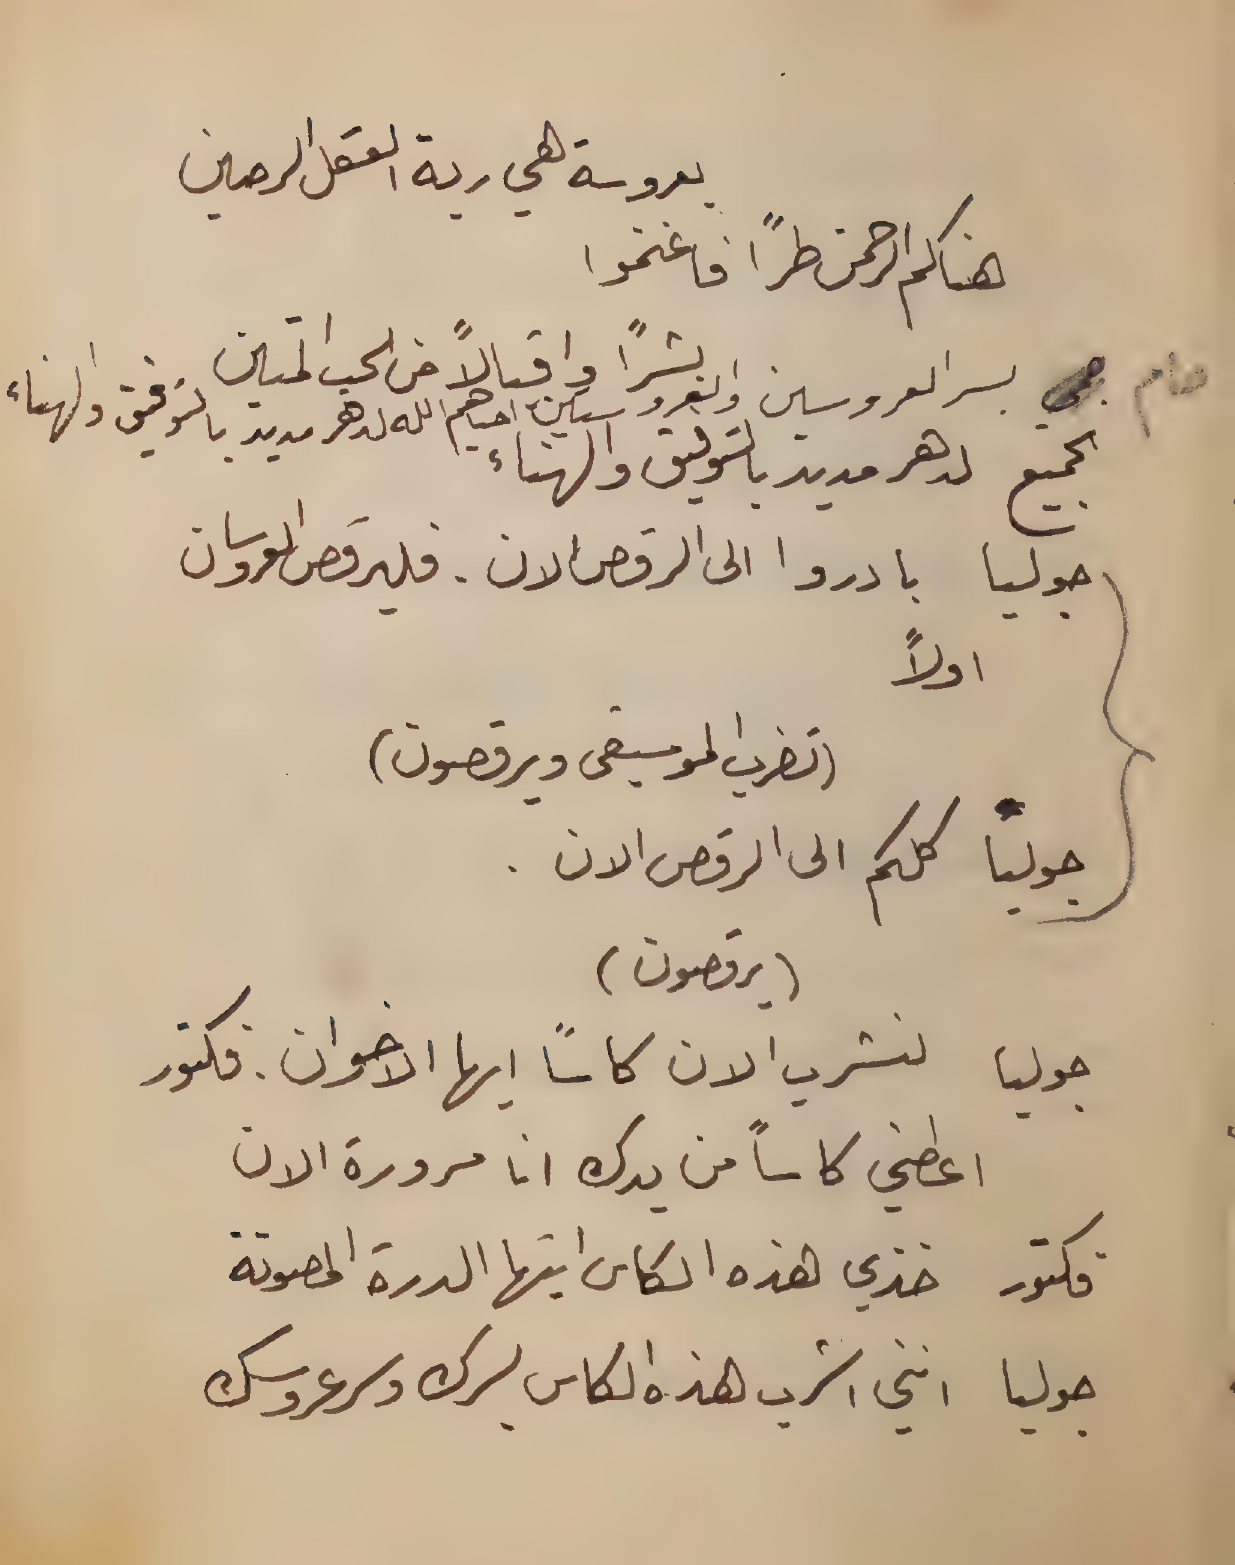 بعروسة هي ربة العقل الرصين
هناكم الرحمن طرًا فاغنموا
بشرًا واقبالاً من الحب المتين
بسر العروسين والعروستين احياهم الله لدهر مديد بالتوفيق والهناء
الجميع لدهر مديد بالتوفيق والهناء
جوليا بادروا الى الرقص الان . فليرقص العروسان
اولاً
(تضرب الموسيقى ويرقصون)
جوليا كلكم الى الرقص الان .
(يرقصون)
جوليا لنشرب الان كاسًا ايها الاخوان . فكتور
اعطني كاساً من يدك انا مسرورة الان
فكتور خذي هذه الكاس ايتها الدرة المصونة
جوليا انني اشرب هذه الكاس بسرك وسر عروسك